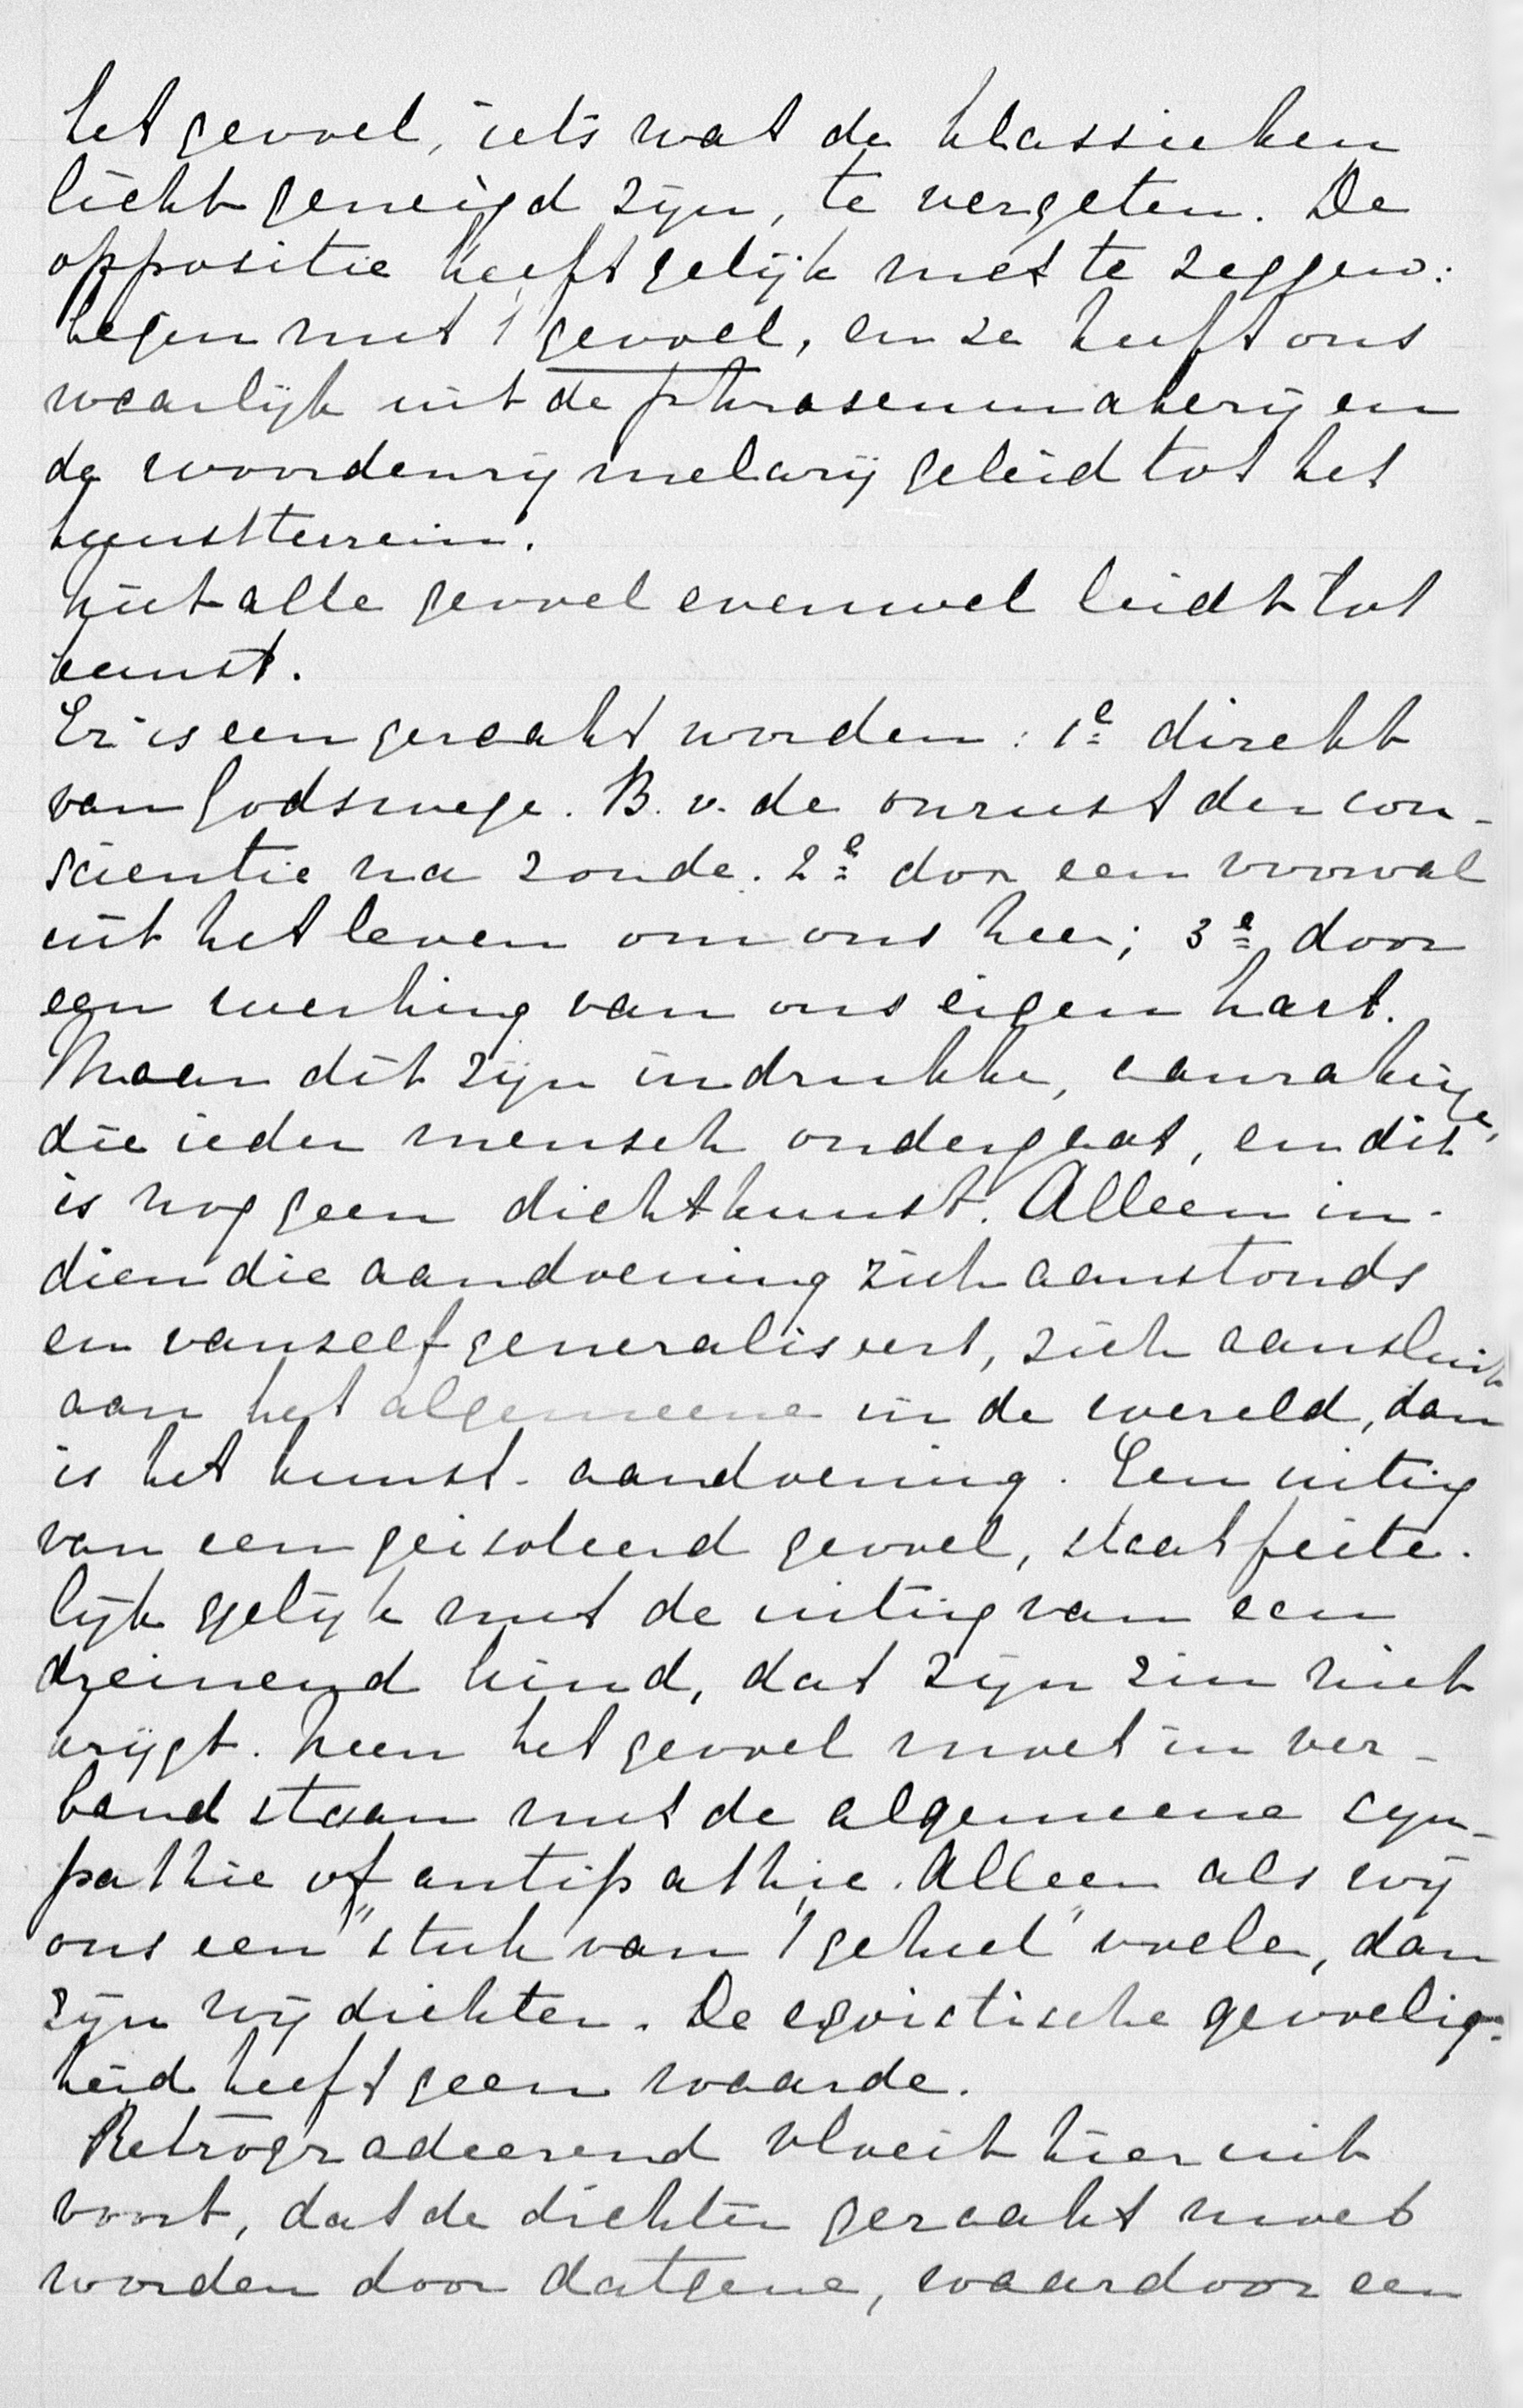 het gevoel, iets wat de klassieken
licht geneigd zijn, te vergeten. De
oppositie heeft gelijk met te zeggen:
begin met 't gevoel, en ze heeft ons
waarlijk uit de phrasenmakerij en
de woordenrijmelarij geleid tot het
kunstterrein.
Niet alle gevoel evenwel leidt tot
kunst.
Er is een geraakt worden: 1e direkt
van Godswege. B.v. de onrust der con-
scientie na zonde. 2e door een voorval
uit het leven om ons heen; 3e door
een werking van ons eigen hart.
Maar dit zijn indrukke, aanrakinge,
die ieder mensch ondergaat, en dit
is nog geen dichtkunst. Alleen in-
dien die aandoening zich aanstonds
en vanzelf generaliseert, zich aansluit
aan het algemeene in de wereld, dan
is het kunst-aandoening. Een uiting
van een geisoleerd gevoel, staat feite-
lijk gelijk met de uiting van een
dreinend kind, dat zijn zin niet
krijgt. Neen het gevoel moet in ver-
band staan met de algemeene sym-
pathie of antipathie. Alleen als wij
ons een "stuk van 't geheel" voelen, dan
zijn wij dichter. De egoïstische gevoelig-
heid heeft geen waarde.
Retrogradeerend vloeit hieruit
voort, dat de dichter geraakt moet
worden door datgene, waardoor een